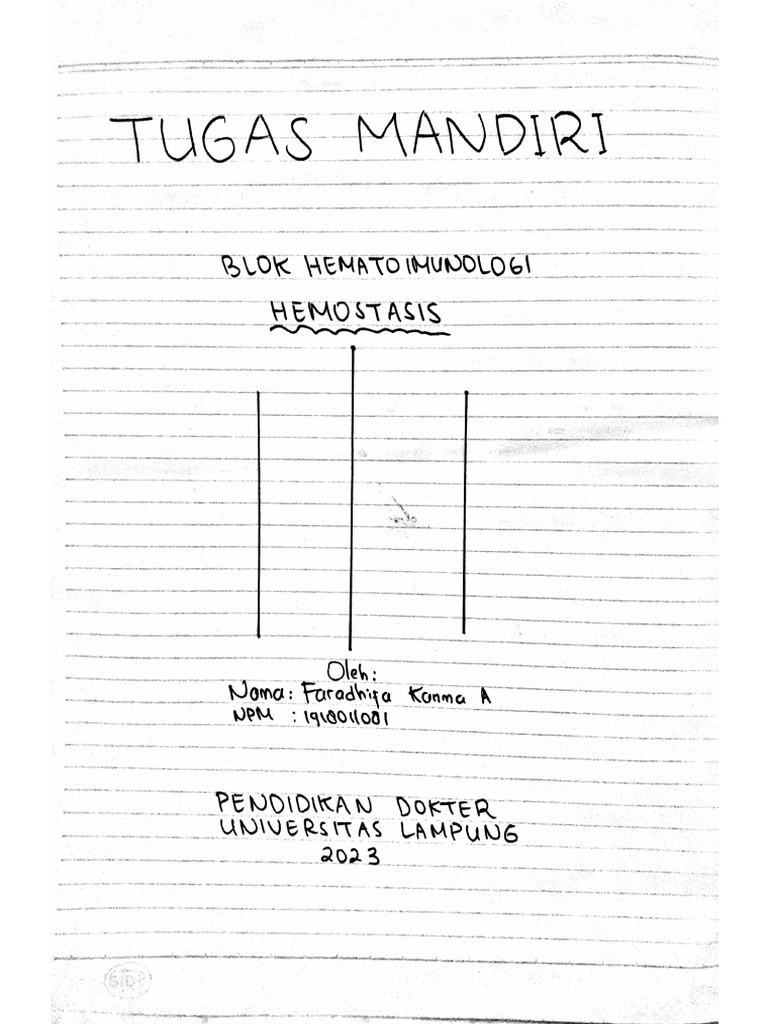 TUGAS MANDIRI
BLOK HEMATOIMUNOLOGI
HEMOSTASIS
Oleh:
Nama: Faradhiqa Kanma A
NPM : 1918011001
PENDIDIKAN DOKTER
UNIVERSITAS LAMPUNG
2023
SIDU